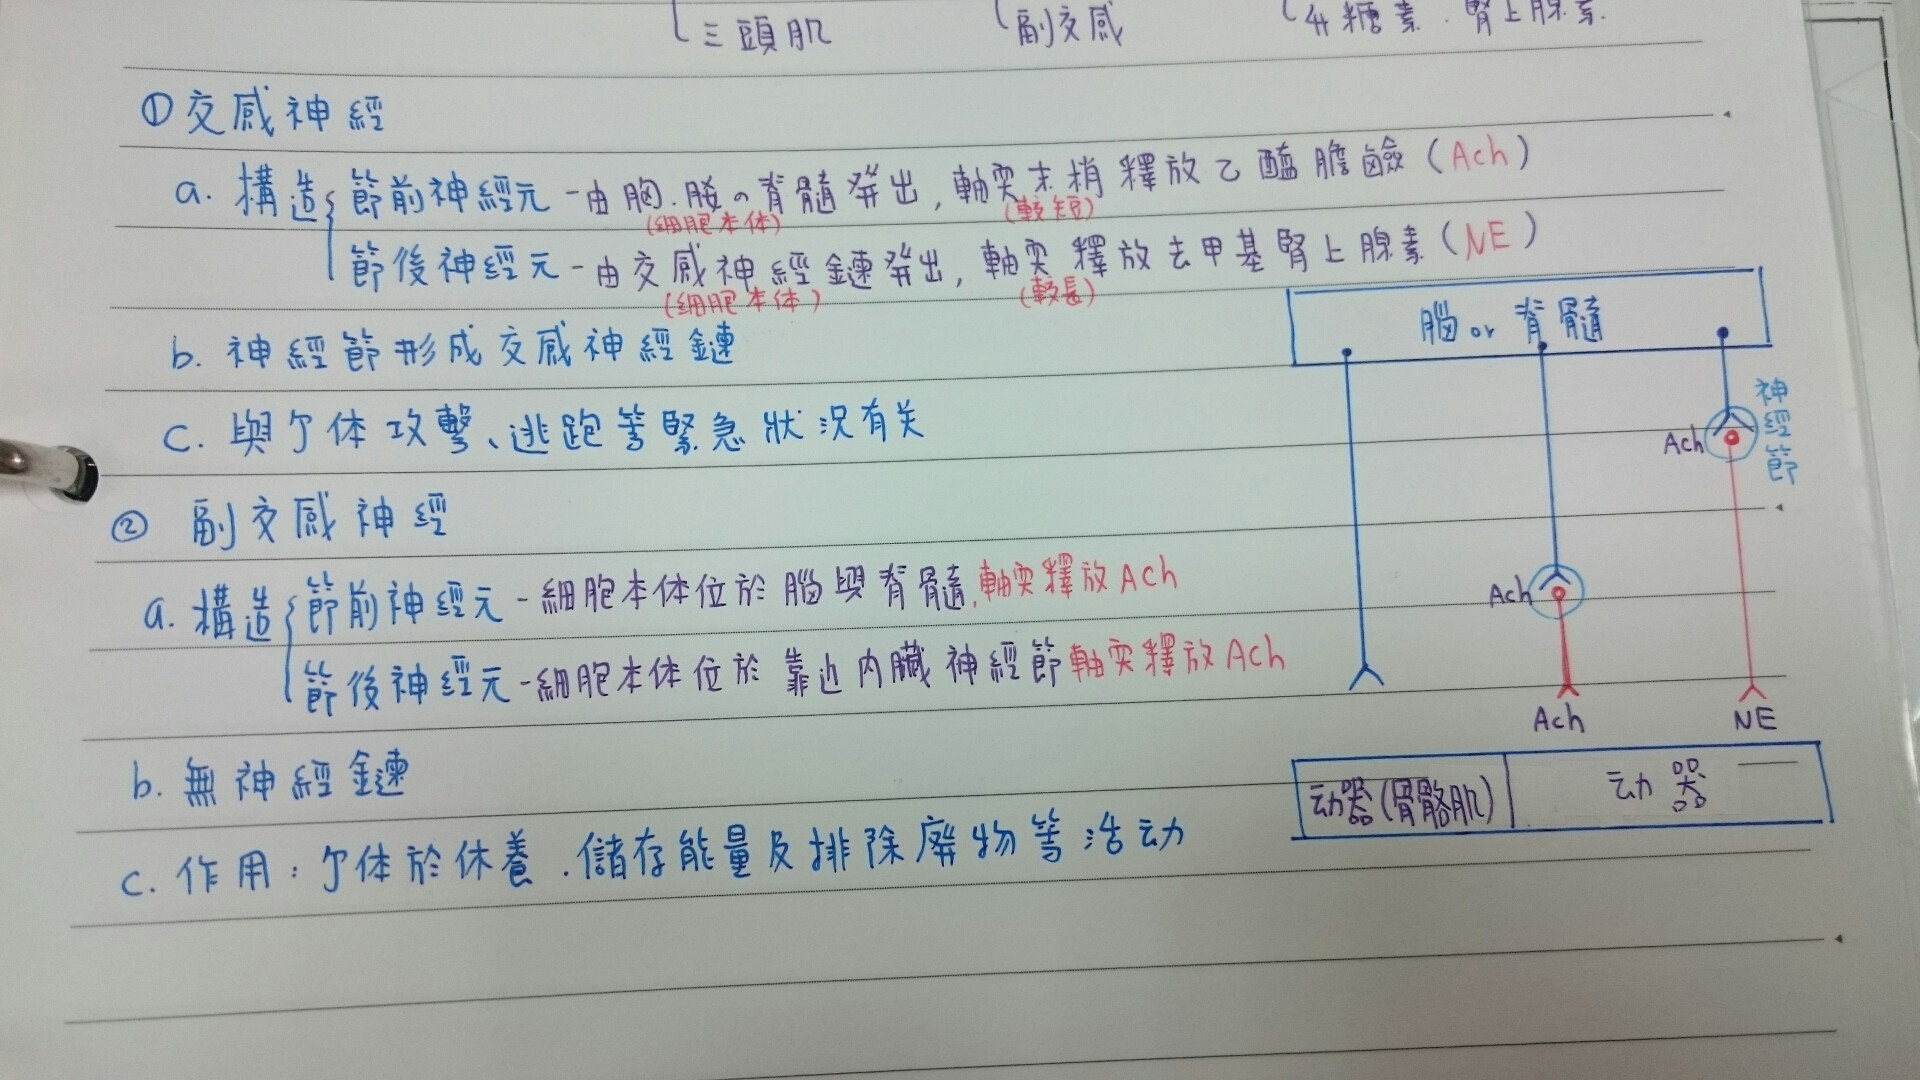 三頭肌 副交感 升糖素.腎上腺素.
①交感神經
a. 構造 節前神經元-由胸.腰の脊髓発出,軸突末梢釋放乙醯膽鹼(Ach)
(細胞本体) (較短)
節後神經元-由交感神經鏈発出,軸突釋放去甲基腎上腺素(NE)
(細胞本体) (較長)
b. 神經節形成交感神經鏈
c. 與个体攻擊、逃跑等緊急狀況有关
② 副交感神經
a. 構造 節前神經元-細胞本体位於腦與脊髓,軸突釋放Ach
節後神經元-細胞本体位於靠近內臟神經節軸突釋放Ach
b. 無神經鏈
c. 作用:个体於休養.儲存能量及排除廢物等活动
腦or脊髓
神經節
Ach
Ach
Ach NE
动器(骨骼肌) 动器